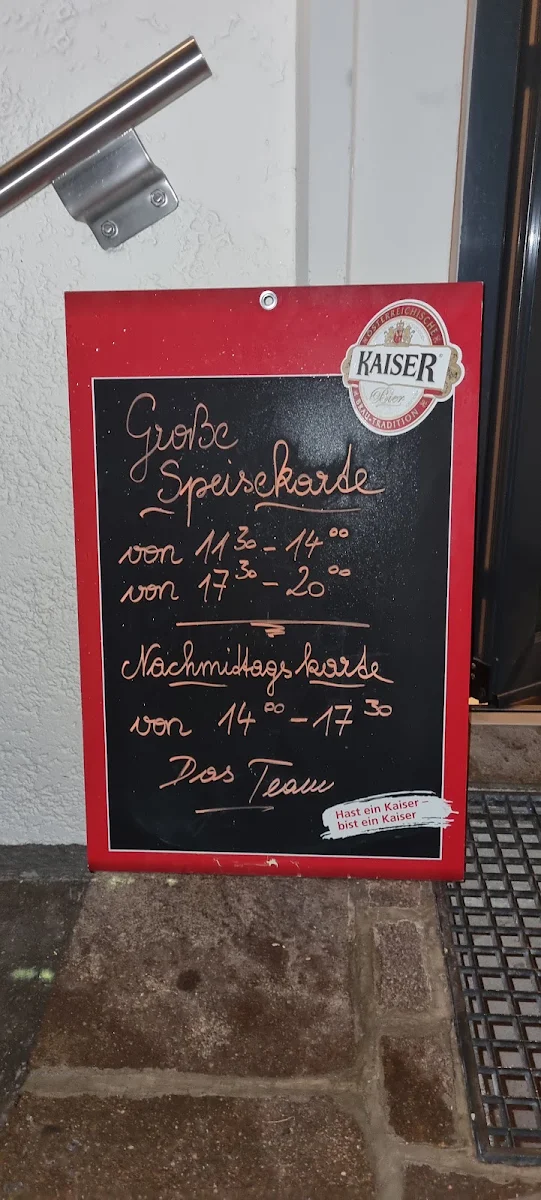 ÖSTERREICHISCHE
KAISER
Bier
BRAU-TRADITION
Große
Speisekarte
von 11 30 - 14 00
von 17 30 - 20 00
Nachmittagskarte
von 14 00 - 17 30
Das Team
Hast ein Kaiser
bist ein Kaiser